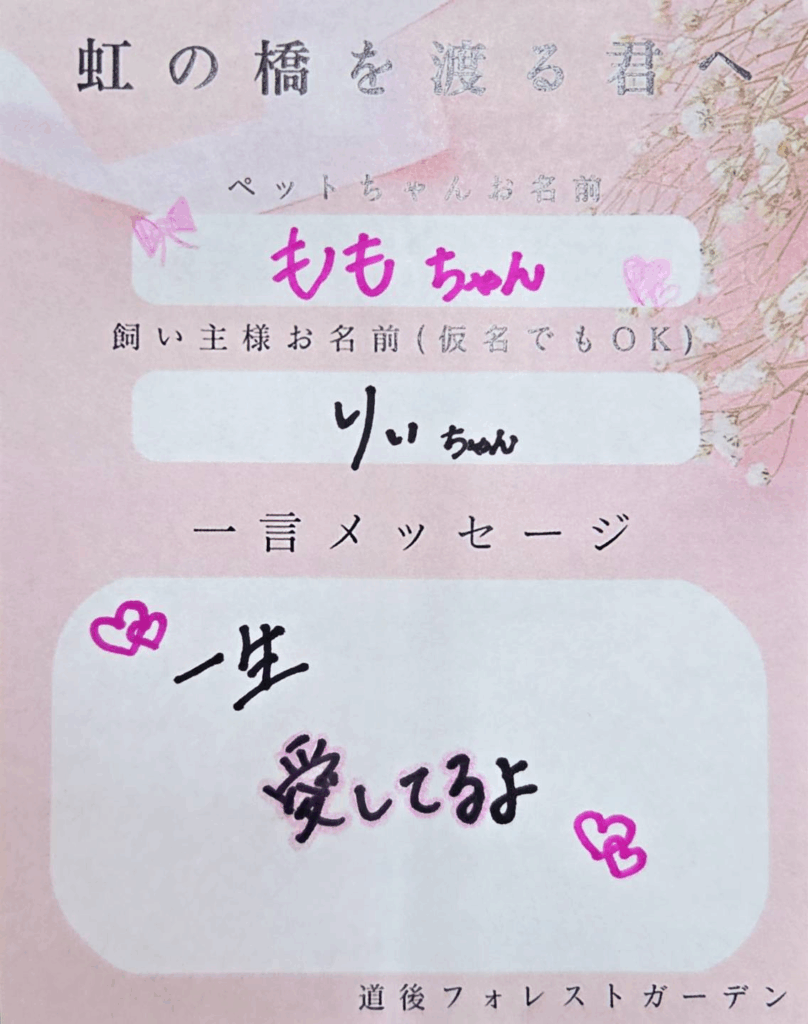 虹の橋を渡る君へ
ペットちゃんお名前
ももちゃん
飼い主様お名前(仮名でもOK)
りぃちゃん
一言メッセージ
一生
愛してるよ
道後フォレストガーデン